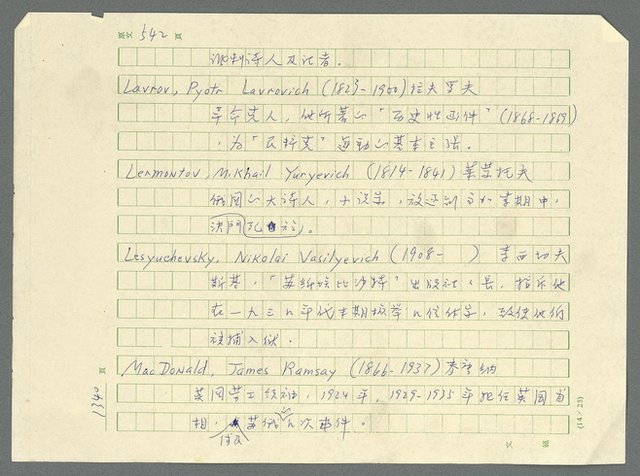 原文 542 頁
諷刺詩人及記者。
Lavrov, Pyotr Lavrovich (1823-1900) 拉夫罗夫
革命党人,他所著的"历史性函件"(1868-1869)
,为「民粹党」运动的基本主张。
Lermontov, Mikhail Yuryevich (1814-1841) 莱蒙托夫
俄国的大诗人,小说家,放逐到高加索期中,
决鬥死
Lesyuchevsky, Nikolai Vasilyevich (1908- ) 李西切夫
斯基,"苏维埃比沙特"出版社社長,指斥他
在一九三〇年代末期检举几位作家,致使他们
被捕入狱。
MacDonald, James Ramsay (1866-1937) 麥唐纳
英国劳工领袖,1924年,1929-1935年担任英国首
相,苏俄几次事件。
涉及
頁 1340
(14×25)